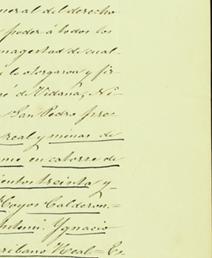 neral del derecho
poder à todos los
magestad de cual-
lo otorgaron y fir-
é de Vidana, Ni-
San Pedro pres
real y minas de
mo en catorce de
ientos treinta y
Hoyos Calderon.=
Antemi. Ygnacio
cribano Real= Es